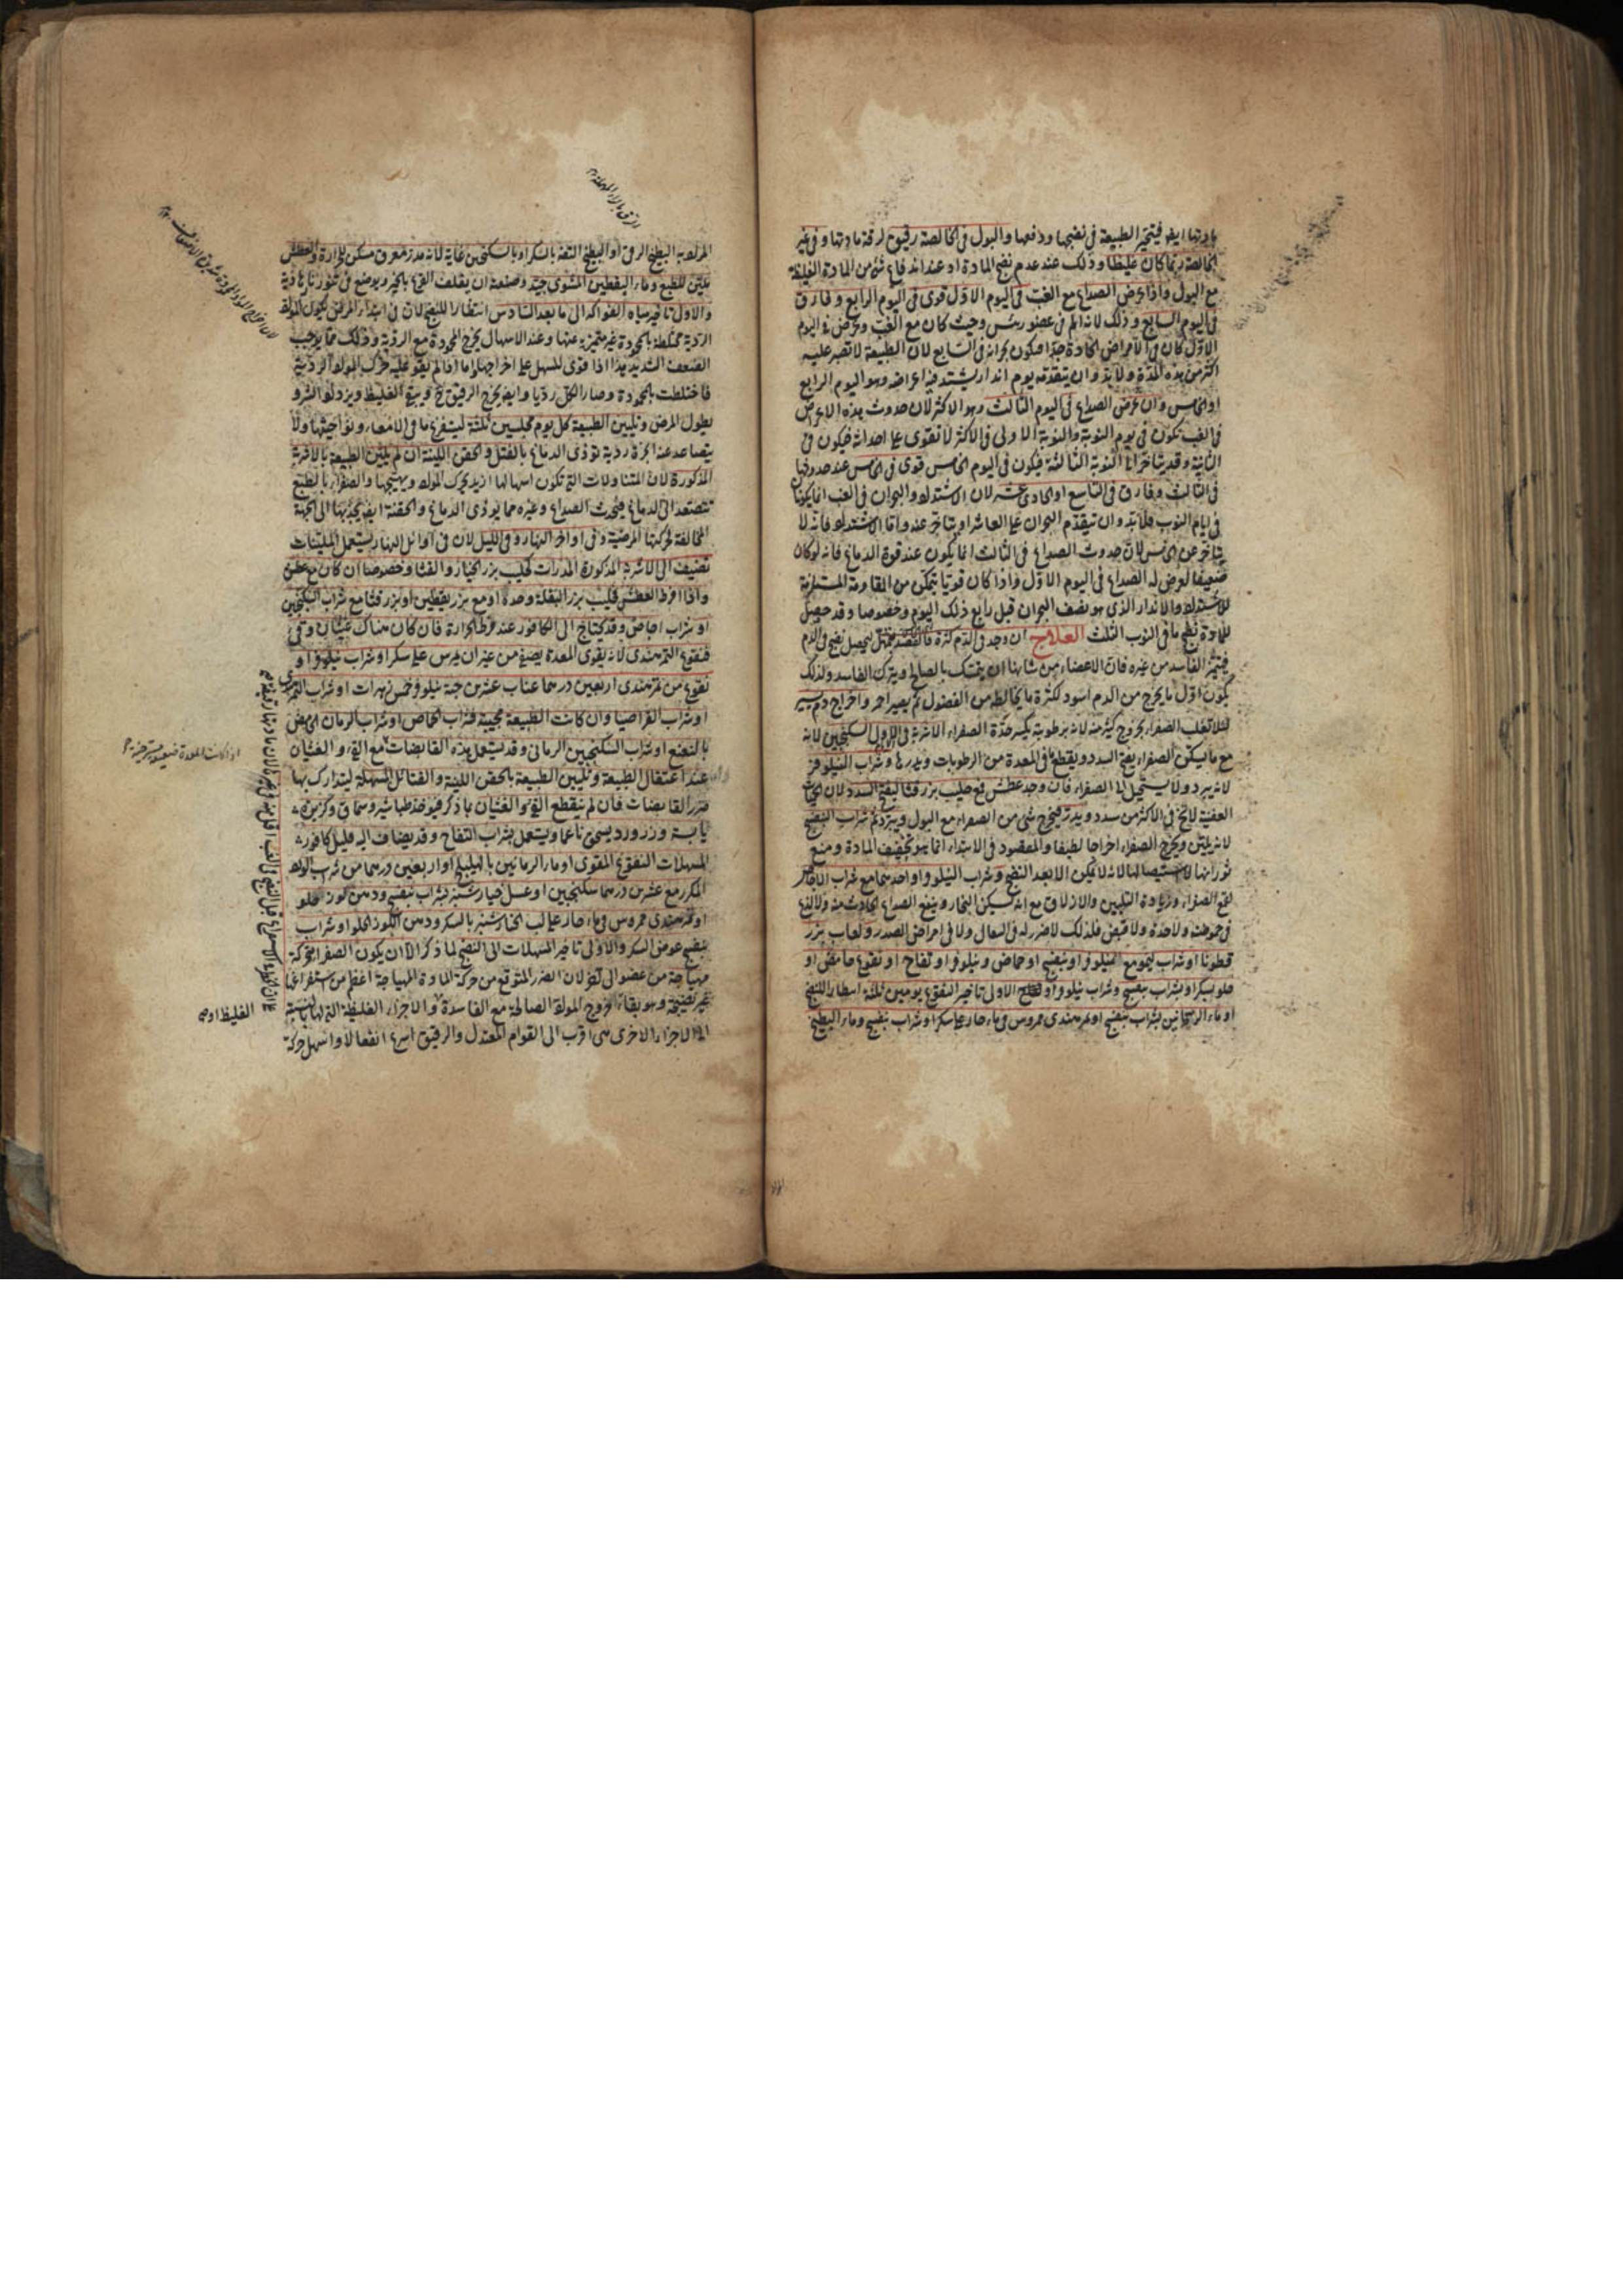 مادتها ايضا فيتحير الطبيعة في نضجها ودفعها والبول في الخالصة رقيق لرقة مادتها وفي غير
الخالصة ربما كان غليظا وذلك عند عدم نضج المادة او عند اندفاع شئ من المادة الغليظة
مع البول واذا عرض الصداع مع الغب في اليوم الاول قوى في اليوم الرابع وفارق
في اليوم السابع وذلك لانه الم في عضو رئيس وحيث كان مع الغب وعرض في اليوم
الاول كان في الامراض الحادة جدا فيكون بحرانه في السابع لان الطبيعة لا تصبر عليه
اكثر من هذه المدة ولا بد وان يتقدمه يوم انذار يشتد فيه اعراضه وهو اليوم الرابع
او الخامس وان عرض الصداع في اليوم الثالث وهو الاكثر لان حدوث هذه الاعراض
في الغب تكون في يوم النوبة والنوبة الاولى في الاكثر لا تقوى على احداثه فيكون في
الثانية وقد يتاخر الى النوبة الثالثة فيكون في اليوم الخامس قوى في الخامس عند حدوثها
في الثالث وفارق في التاسع او الحادي عشر لان الاشتداد والبحران في الغب انما يكونان
في ايام النوب فلا بد وان يتقدم البحران على العاشر او يتاخر عنه واما الاشتداد فانه لا
يتاخر عن الخامس لان حدوث الصداع في الثالث انما يكون عند قوة الدماغ فانه لو كان
ضعيفا لعرض له الصداع في اليوم الاول واذا كان قويا يتمكن من المقاومة المستلزمة
للاشتداد والانذار الذي هو نصف البحران قبل رابع ذلك اليوم وخصوصا وقد حصل
للمادة نضج ما في النوب الثلث العلاج ان وجد في الدم كثرة فالفصد بتمهل ليحصل نضج في الدم
فيتميز الفاسد من غيره فان الاعضاء من شانها ان تتمسك بالصالح ويترك الفاسد ولذلك
يكون اول ما يخرج من الدم اسود لكثرة ما يخالطه من الفضول ثم يصير احمر واخراج دم يسير
لئلا تغلب الصفراء بخروج كثير منه لانه برطوبته يكسر حدة الصفراء الاشربة في الاول السكنجبين لانه
مع ما يسكن الصفراء يفتح السدد ويقطع ما في المعدة من الرطوبات ويدرها وشراب النيلوفر
لانه يبرد ولا يستحيل الى الصفراء فان وجد عطش فمع حليب بزر قثا ليفتح السدد لان الحميات
العفنية لا تخ في الاكثر من سدد ويدر فيخرج شئ من الصفراء مع البول ويبرد ثم شراب البنفسج
لانه يلين ويخرج الصفراء اخراجا لطيفا والمقصود في الابتداء انما هو تخفيف المادة ومنع
ثورانها لا استيصالها لانه لا يمكن الا بعد النضج وشراب النيلوفر او احدهما مع شراب الاجاص
لقمع الصفراء وزيادة التليين والازلاق مع انه يسكن البخار وينفع الصداع الحادث منه ولا لذع
في حموضته ولا حدة ولا قبض فلذلك لا ضرر له في السعال ولا في امراض الصدر ولعاب بزر
قطونا او شراب ليمو مع النيلوفر او بنفسج او حماض ونيلوفر او تفاح او نقوع حامض او
حلو بسكر او بشراب بنفسج وشراب نيلوفر او الاولى تاخير النقوع يومين ثلثة انتظارا للنضج
او ماء الرمانين بشراب بنفسج او تمر هندى ممروس في ماء حار على سكر او شراب بنفسج وماء البطيخ
الرقي بالراء المهملة
المراد به البطيخ الرقي او البطيخ التفه بالسكر او بالسكنجبين غاية لانه مدر معرق مسكن للحرارة والعطش
ملين للطبع وماء اليقطين المشوى جيد وصنعة ان يغلف القرع بالخمير ويوضع في تنور ناره هادية
والاولى تاخير مياه الفواكه الى ما بعد السادس انتظارا للنضج لان في ابتداء المرض تكون المواد
الردية مختلطة بالمحمودة غير متميزة عنها وعند الاسهال تخرج المحمودة مع الردية وذلك مما يوجب
الضعف الشديد هذا اذا قوى المسهل على اخراجها واما اذا لم يقو عليه حرك المواد الردية
فاختلطت بالمحمودة وصار الكل رديا وايضا يخرج الرقيق فج ويبقى الغليظ ويزداد الشر و
يطول المرض وتليين الطبيعة كل يوم مجلسين ثلثة ليستفرغ ما في الامعاء ونواحيها ولا
يتصاعد عنه ابخرة ردية تؤذى الدماغ بالفتل والحقن اللينة ان لم يلين الطبيعة بالاشربة
المذكورة لان المتناولات التي تكون اسهالها ازيد يحرك المواد ويهيجها والصفراء بالطبع
تتصعد الى الدماغ فيحدث الصداع وغيره مما يؤذى الدماغ والحقنة ايضا يجذبها الى الجهة
المخالفة لحركتها المرضية وفي اواخر النهار وفي الليل لان في اوائل النهار يستعمل الملينات
تضيف الى الاشربة المذكورة المدرات كحليب بزر الخيار والقثا وخصوصا ان كان مع عطش
واذا افرط العطش فحليب بزر البقلة وحده او مع بزر يقطين او بزر قثا مع شراب السكنجبين
او شراب اجاص وقد يحتاج الى الكافور عند فرط الحرارة فان كان هناك غثيان وقئ
فنقوع التمر هندى لانه يقوى المعدة يصفى من غير ان يمرس على سكر او شراب نيلوفر او
نقوع من تمر هندى اربعين درهما عناب عشرين حبة نيلوفر خمس زهرات او شراب التمر هندى
او شراب القراصيا وان كانت الطبيعة مجيبة فشراب الحماض او شراب الرمان الحامض
بالنعنع او شراب السكنجبين الرماني وقد يستعمل هذه القابضات مع القئ والغثيان
عند اعتقال الطبيعة وتليين الطبيعة بالحقن اللينة والفتائل المسهلة ليتدارك بها
ضرر القابضات فان لم ينقطع القئ والغثيان بما ذكر فيؤخذ طباشير وسماق وكزبرة
يابسة وزر ورد يسحق ناعما ويستعمل بشراب التفاح وقد يضاف اليه قليل كافور
المسهلات النقوع المقوى او ماء الرمانين بالهليلج او اربعين درهما من شراب الورد
المكرر مع عشرين درهما سكنجبين او عسل خيار شنبر بشراب بنفسج ودهن لوز حلو
او تمر هندى ممروس في ماء حار على لب الخيار شنبر بالسكر ودهن اللوز الحلو او شراب
بنفسج عوض السكر والاولى تاخير المسهلات الى النضج لما ذكر الا ان يكون الصفراء متحركة
مهياجة من عضو الى عضو لان الضرر المتوقع من حركة المادة المهياجة اعظم من استفراغها
غير نضيجة وهو بقاء وخروج المواد الصالحة مع الفاسدة والاجزاء الغليظة التي لها بالنسبة
الى الاجزاء الاخرى هى اقرب الى القوام المعتدل والرقيق اسرع انفعالا واسهل حركة
اذا كانت المعدة ضعيفة مسترخية
الغليظ اوجه